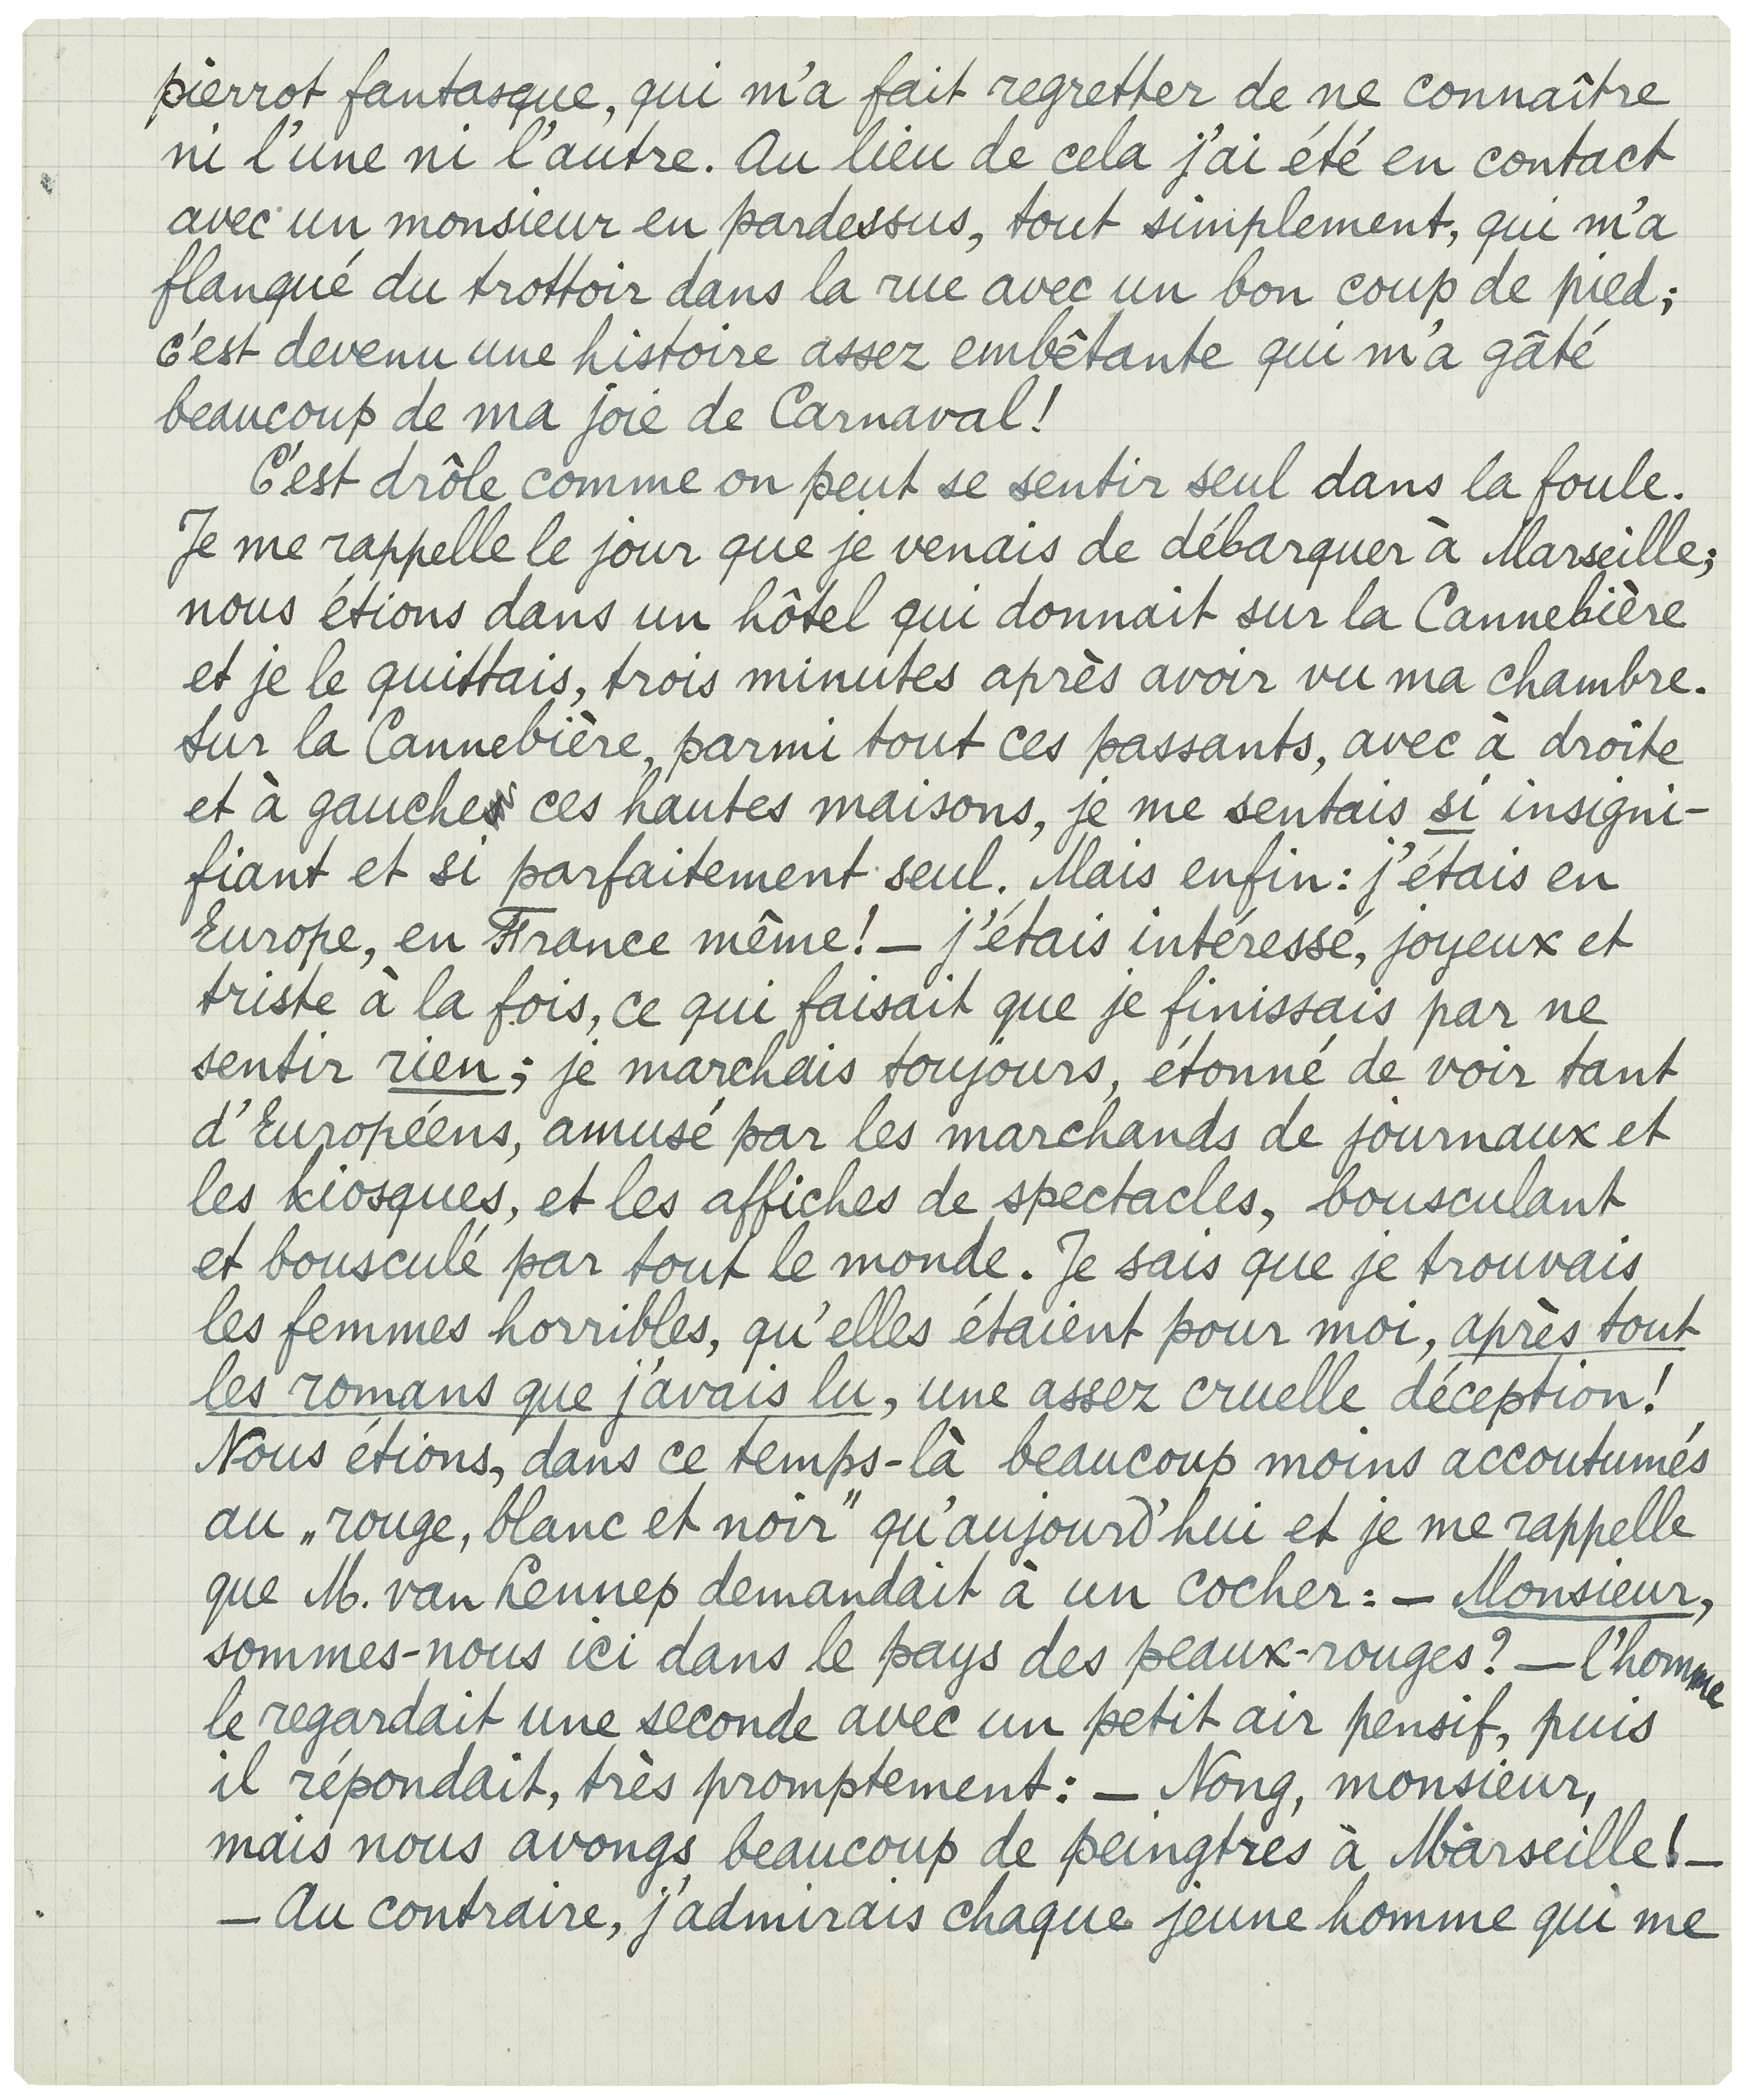 pierrot fantasque, qui m'a fait regretter de ne connaître
ni l'une ni l'autre. Au lieu de cela j'ai été en contact
avec un monsieur en pardessus, tout simplement, qui m'a
flanqué du trottoir dans la rue avec un bon coup de pied;
c'est devenu une histoire assez embêtante qui m'a gâté
beaucoup de ma joie de Carnaval!
C'est drôle comme on peut se sentir seul dans la foule.
Je me rappelle le jour que je venais de débarquer à Marseille;
nous étions dans un hôtel qui donnait sur la Cannebière
et je le quittais, trois minutes après avoir vu ma chambre.
Sur la Cannebière, parmi tout ces passants, avec à droite
et à gauche ces hautes maisons, je me sentais si insigni-
fiant et si parfaitement seul. Mais enfin: j'étais en
Europe, en France même! — j'étais intéressé, joyeux et
triste à la fois, ce qui faisait que je finissais par ne
sentir rien; je marchais toujours, étonné de voir tant
d'Européens, amusé par les marchands de journaux et
les kiosques, et les affiches de spectacles, bousculant
et bousculé par tout le monde. Je sais que je trouvais
les femmes horribles, qu'elles étaient pour moi, après tout
les romans que j'avais lu, une assez cruelle déception!
Nous étions, dans ce temps-là beaucoup moins accoutumés
au „rouge, blanc et noir" qu'aujourd'hui et je me rappelle
que M. van Lennep demandait à un cocher: — Monsieur,
sommes-nous ici dans le pays des peaux-rouges? — l'homme
le regardait une seconde avec un petit air pensif, puis
il répondait, très promptement: — Nong, monsieur,
mais nous avongs beaucoup de peingtres à Marseille! —
— Au contraire, j'admirais chaque jeune homme qui me